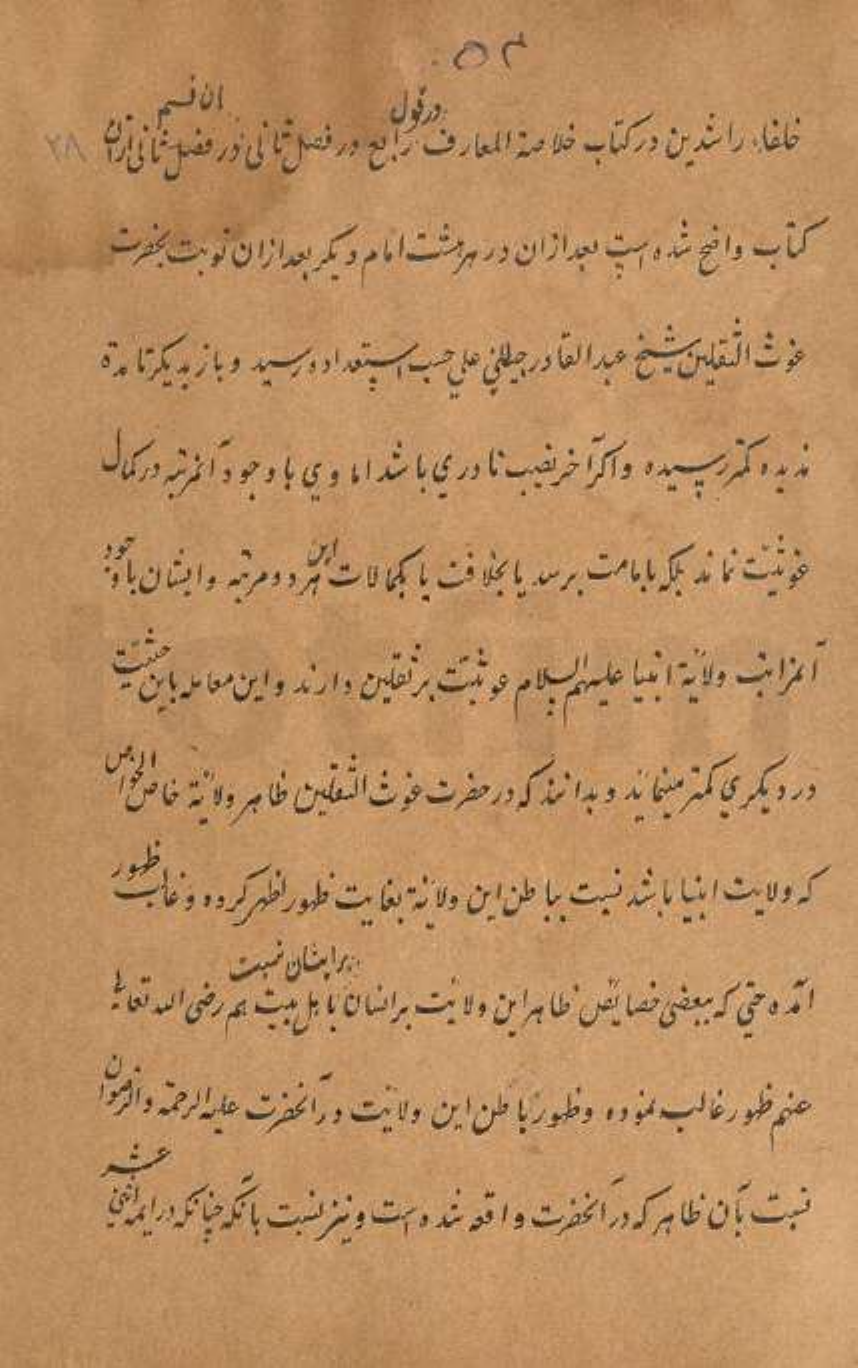 ۵۳
ان قسم
در قول
خلفاء راشدین در کتاب خلاصة المعارف رابع در فصل ثانی در فصل ثانی ازان
۲۸
کتاب واضح شده است بعد ازان در هر هشت امام دیگر بعد ازان نوبت بحضرت
غوث الثقلین شیخ عبد القادر جیلانی علی حسب استعداد و رسید و باز بدیگر تا مدة
مدیده کمتر رسیده و اکر آخر نصیب نادری باشد اما وی با وجود آنمرتبه در کمال
غوثیّت نماند بلکه بامامت برسد یا بخلافت یا بکمالات این هر دو مرتبه و ایشان با وجود
آنمراتب ولایة انبیا علیهم السلام غوثیّت بر ثقلین دارند و این معامله باین حیثیّت
در دیکری کمتر مینماید و بدانند که در حضرت غوث الثقلین ظاهر ولایة خاص الخواص
که ولایت انبیا باشد نسبت بباطن این ولایة بغایت ظهور کرده و غالب ظهور
بر ایشان نسبت
آمده حتی که ببعضی خصایص ظاهر این ولایت بر ایشان باهل بیت هم رضی الله تعالی
عنهم ظهور غالب نموده و ظهور باطن این ولایت در آنحضرت علیه الرحمة والرضوان
نسبت بآن ظاهر که در آنحضرت واقعه شده است و نیز نسبت بآنکه چنانکه در ایمه اثنی عشر